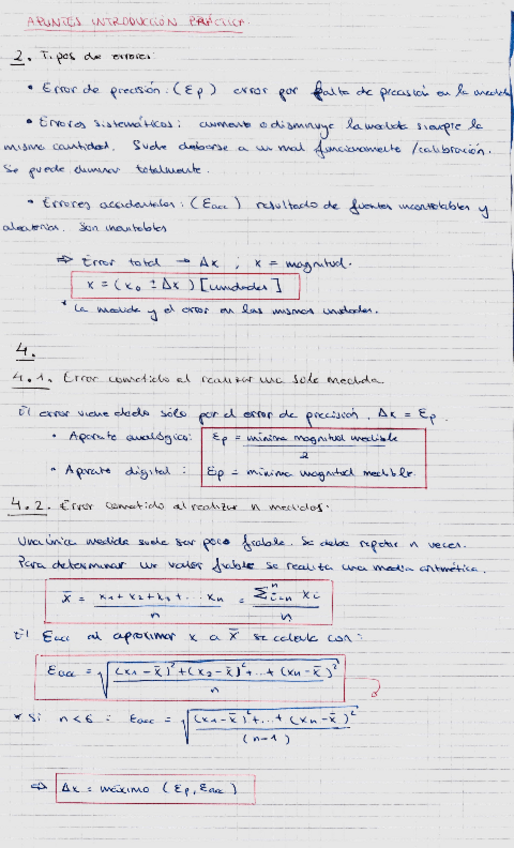 APUNTES INTRODUCCIÓN PRÁCTICA.
2. Tipos de errores:
• Error de precisión: (Ep) error por falta de precisión en la medida
• Errores sistemáticos: aumenta o disminuye la medida siempre la
misma cantidad. Suele deberse a un mal funcionamiento / calibración.
Se puede eliminar totalmente.
• Errores accidentales: (Eacc) resultado de fuentes incontrolables y
aleatorias. Son inevitables
⇒ Error total → Δx ; x = magnitud.
x = (x₀ ± Δx) [unidades]
* La medida y el error en las mismas unidades.
4.
4.1. Error cometido al realizar una sola medida
El error viene dado sólo por el error de precisión. Δx = Ep.
• Aparato analógico: Ep = mínima magnitud medible / 2
• Aparato digital: Ep = mínima magnitud medible.
4.2. Error cometido al realizar n medidas:
Una única medida suele ser poco fiable. Se debe repetir n veces.
Para determinar un valor fiable se realiza una media aritmética.
x̄ = x₁ + x₂ + x₃ + ... xₙ / n = Σⁿᵢ₌ₙ xᵢ / n
El Eacc al aproximar x a x̄ se calcula con:
Eacc = √((x₁ - x̄)² + (x₂ - x̄)² + ... + (xₙ - x̄)² / n)
* Si n < 6 : Eacc = √((x₁ - x̄)² + ... + (xₙ - x̄)² / (n-1))
⇒ Δx = máximo (Ep, Eacc)